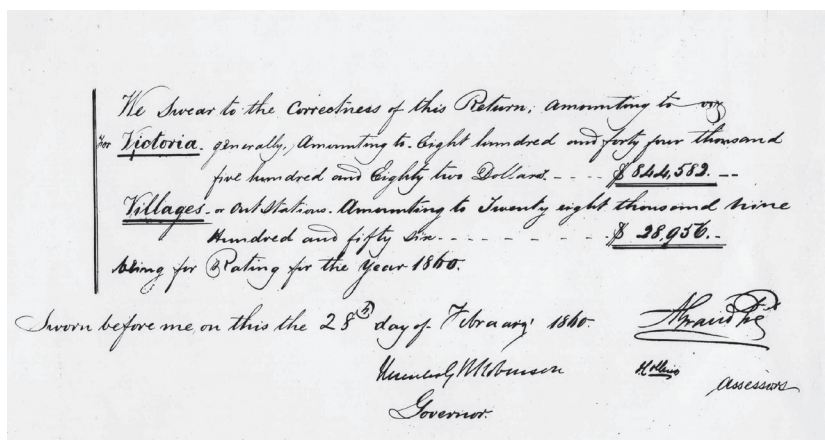 We Swear to the Correctness of this Return; Amounting to viz
For Victoria - generally, Amounting to Eight hundred and forty four thousand
five hundred and Eighty two Dollars. - - - - $ 844,582. - -
Villages - or Out Stations. Amounting to Twenty eight thousand nine
Hundred and fifty six - - - - - - - - - - $ 28,956. -
being for Rating for the Year 1860.
Sworn before me on this the 28th day of February 1860.
Hercules G R Robinson
Assessors
Governor.